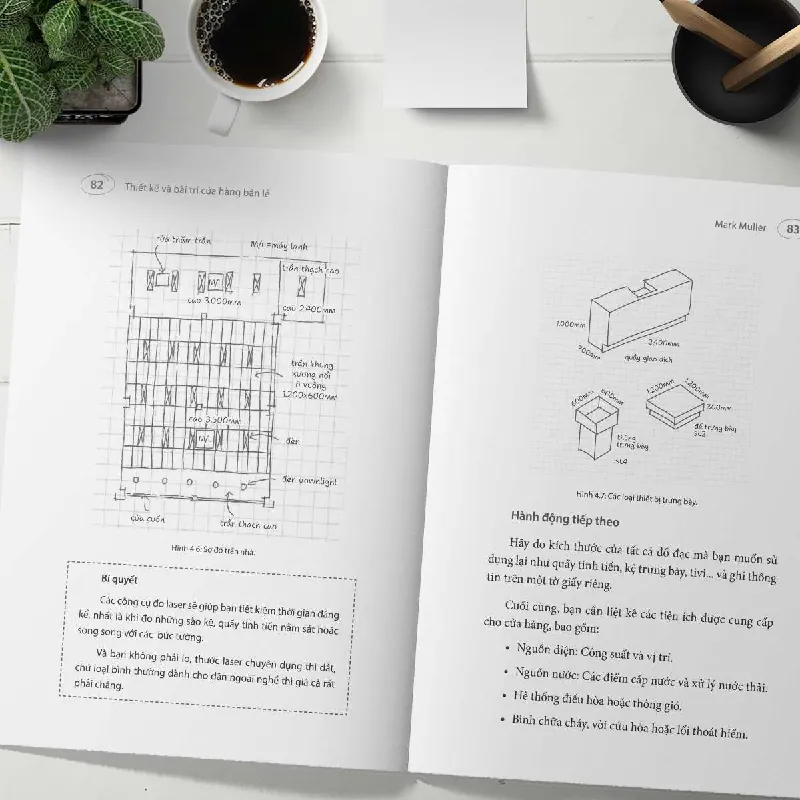 82 Thiết kế và bài trí cửa hàng bán lẻ
M/L = máy lạnh
trần thạch cao
M/L
cao 3.000mm
cao 2.400mm
trần khung
xương nổi
ô vuông
1.200x600mm
cao 3.500mm
M/L
đèn
đèn downlight
cửa cuốn
trần thạch cao
Hình 4.6: Sơ đồ trần nhà.
Bí quyết
Các công cụ đo laser sẽ giúp bạn tiết kiệm thời gian đáng
kể, nhất là khi đo những sào kệ, quầy tính tiền nằm sát hoặc
song song với các bức tường.
Và bạn không phải lo, thước laser chuyên dụng thì đắt,
chứ loại bình thường dành cho dân ngoài nghề thì giá cả rất
phải chăng.
Mark Muller 83
1.000mm
700mm
3.600mm
quầy giao dịch
600mm
600mm
1.200mm
1.200mm
thùng
trưng bày
SL:4
đế trưng bày
SL:2
Hình 4.7: Các loại thiết bị trưng bày.
Hành động tiếp theo
Hãy đo kích thước của tất cả đồ đạc mà bạn muốn sử
dụng lại như quầy tính tiền, kệ trưng bày, tivi... và ghi thông
tin trên một tờ giấy riêng.
Cuối cùng, bạn cần liệt kê các tiện ích được cung cấp
cho cửa hàng, bao gồm:
• Nguồn điện: Công suất và vị trí.
• Nguồn nước: Các điểm cấp nước và xử lý nước thải.
• Hệ thống điều hòa hoặc thông gió.
• Bình chữa cháy, vòi cứu hỏa hoặc lối thoát hiểm.